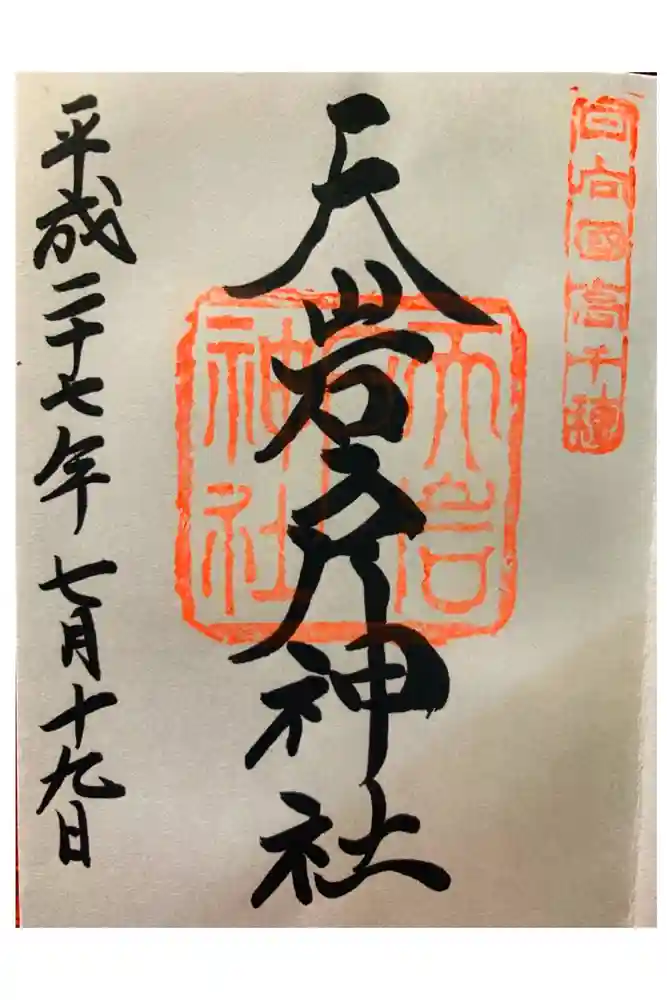 日向国高千穂
天岩戸神社
天岩
神社
平成二十七年七月十九日